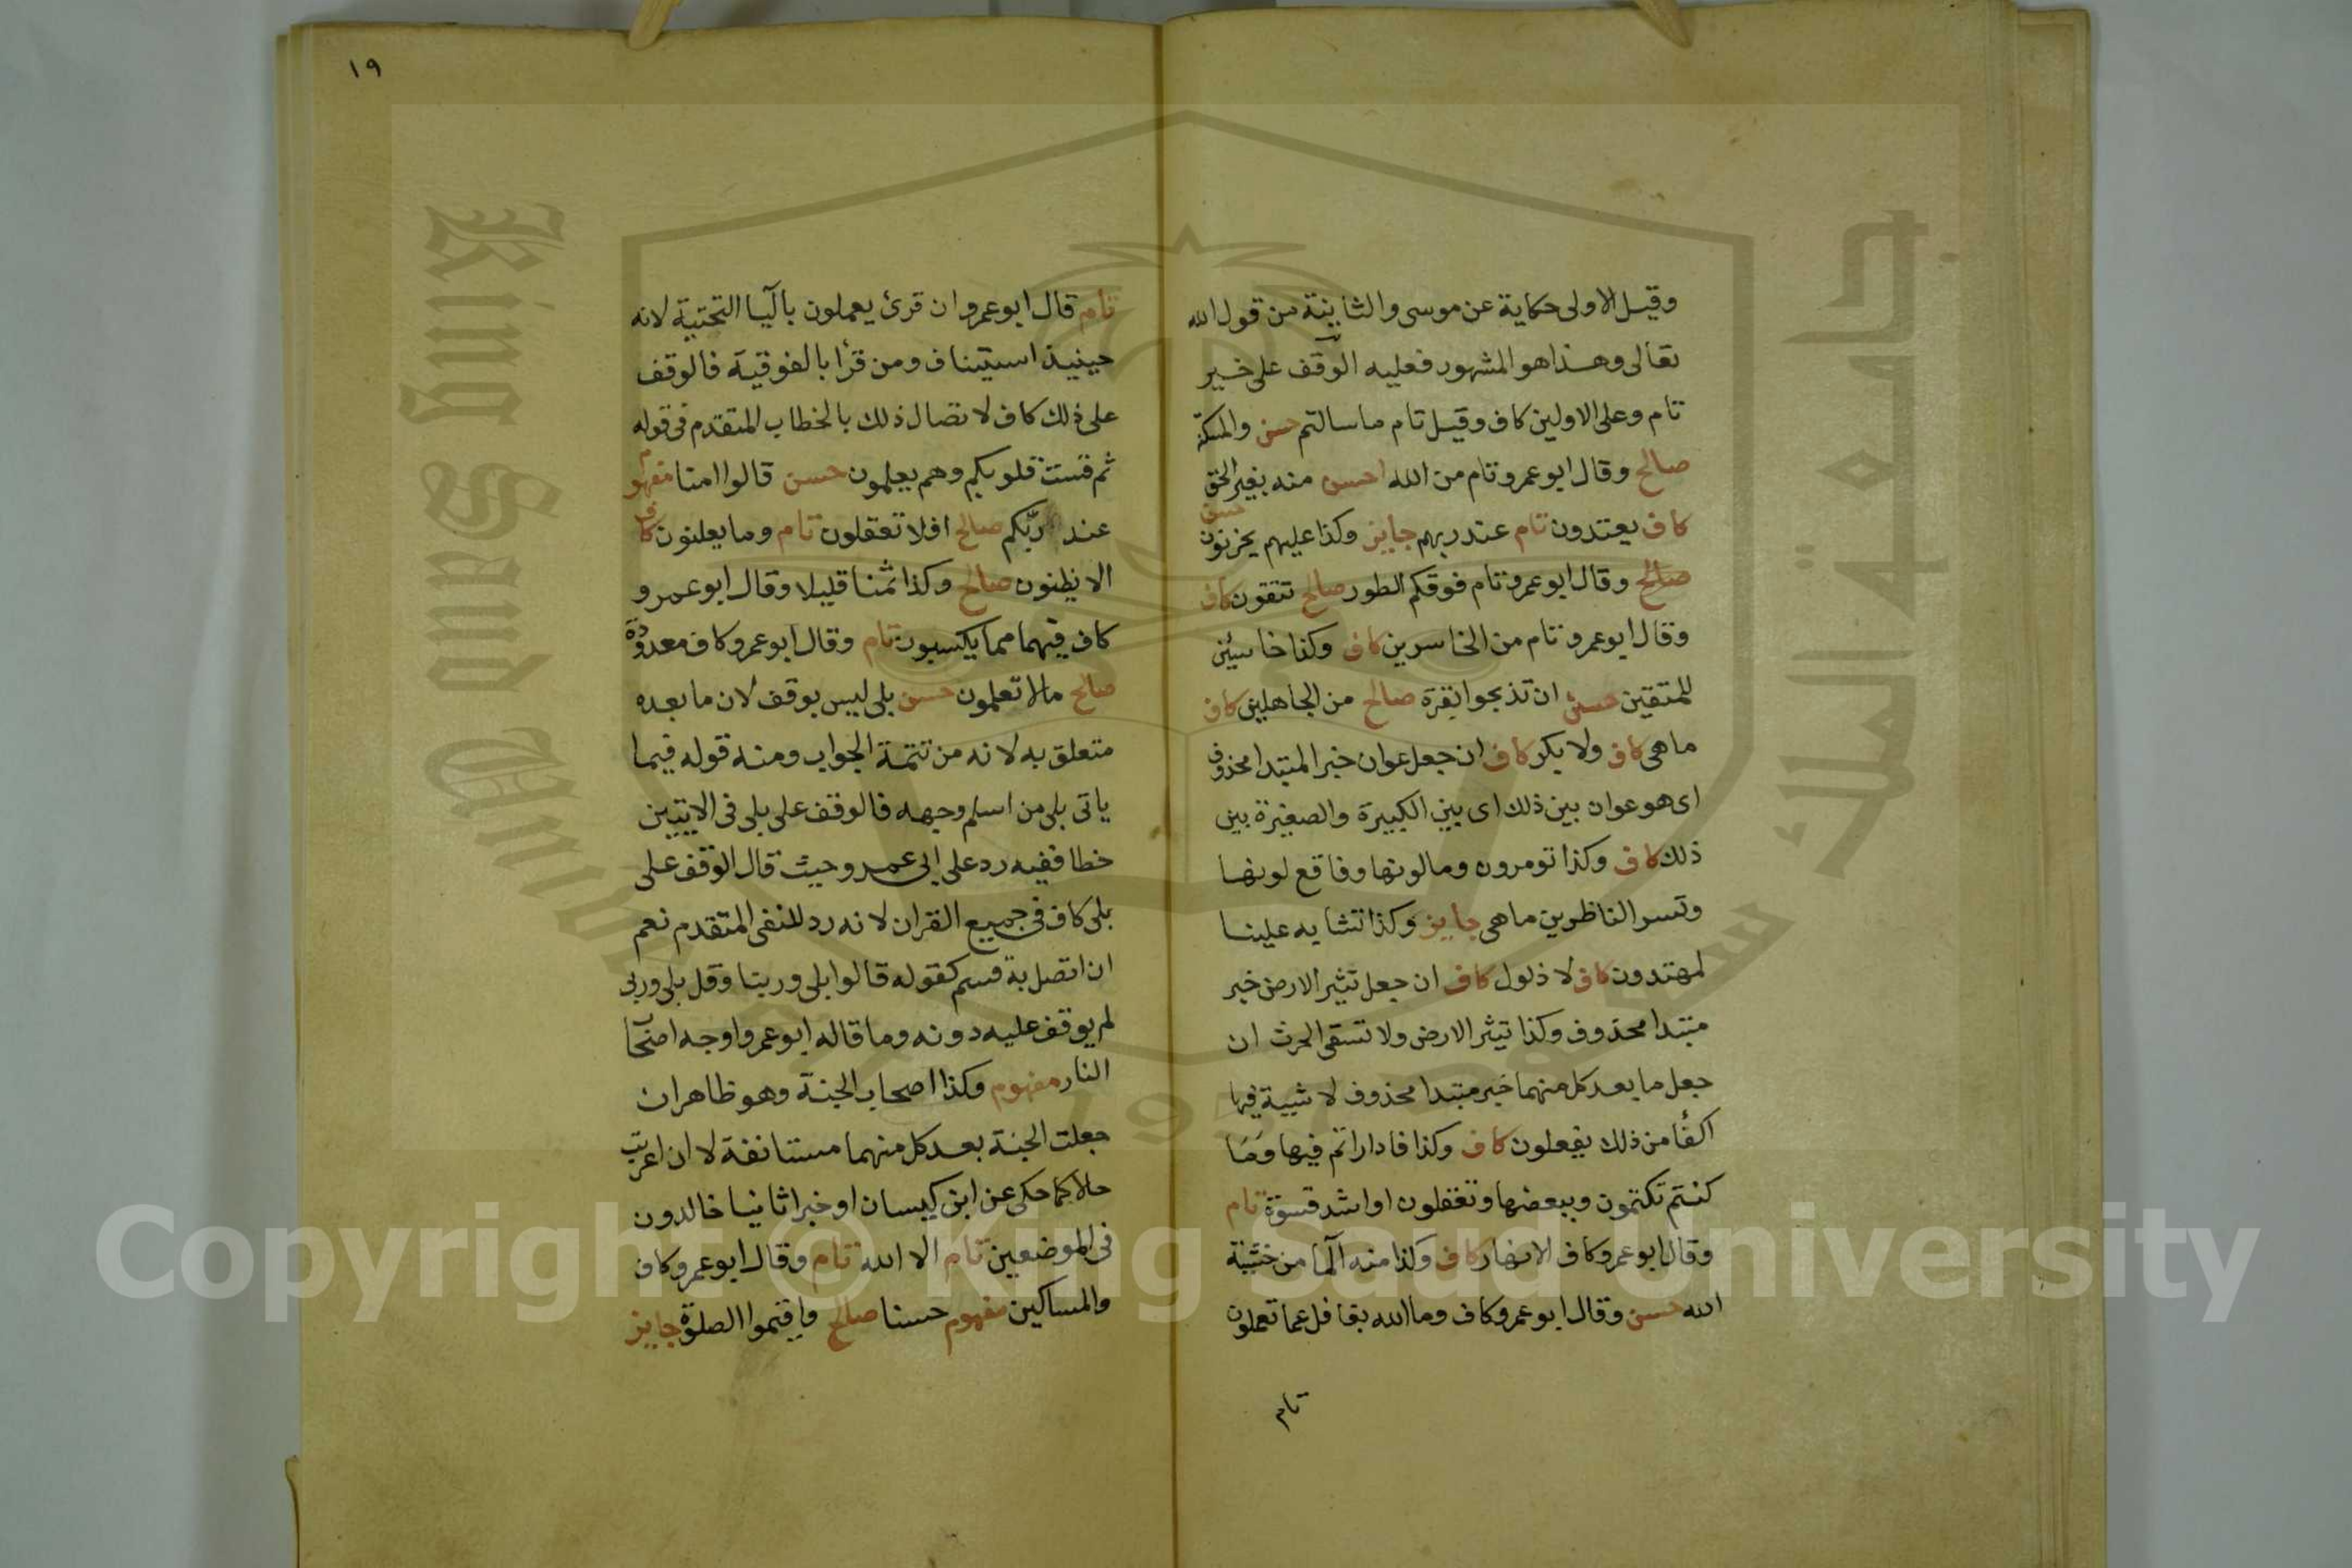 وقيل الاولى حكاية عن موسى والثانية من قول الله
تعالى وهذا هو المشهور فعليه الوقف على خير
تام وعلى الاولين كاف وقيل تام ما سالتم حسن والمسكنة
صالح وقال ابو عمرو تام من الله احسن منه بغير الحق
كاف يعتدون تام عند ربهم جايز وكذا عليهم يحزنون حسن
صالح وقال ابو عمرو تام فوقكم الطور صالح تتقون كاف
وقال ابو عمرو تام من الخاسرين كاف وكذا خاسئين
للمتقين حسن ان تذبحوا بقرة صالح من الجاهلين كاف
ما هى كاف ولا بكر كاف ان جعل عوان خبر المبتدا محذوف
اى هو عوان بين ذلك اى بين الكبيرة والصغيرة بين
ذلك كاف وكذا تومرون وما لونها وفاقع لونها
وتسر الناظرين ما هى جايز وكذا تشابه علينا
لمهتدون كاف لا ذلول كاف ان جعل تثير الارض خبر
مبتدا محذوف وكذا تثير الارض ولا تسقى الحرث ان
جعل ما بعد كل منهما خبر مبتدا محذوف لا شية فيها
اكفأ من ذلك يفعلون كاف وكذا فادارأتم فيها وما
كنتم تكتمون وببعضها وتعقلون او اشد قسوة تام
وقال ابو عمرو كاف الانهار كاف وكذا منه الما من خشية
الله حسن وقال ابو عمرو كاف وما الله بغافل عما تعملون
تام
١٩
تام قال ابو عمرو ان قرئ يعملون باليا التحتية لانه
حينيذ استيناف ومن قرأ بالفوقية فالوقف
على ذلك كاف لاتصال ذلك بالخطاب المتقدم فى قوله
ثم قست قلوبكم وهم يعلمون حسن قالوا امنا مفهوم
عند ربكم صالح افلا تعقلون تام وما يعلنون كاف
الا يظنون صالح وكذا ثمنا قليلا وقال ابو عمرو
كاف فيهما مما يكسبون تام وقال ابو عمرو كاف معدودة
صالح مالا تعلمون حسن بلى ليس بوقف لان ما بعده
متعلق به لانه من تتمة الجواب ومنه قوله فيما
ياتى بلى من اسلم وجهه فالوقف على بلى فى الايتين
خطا ففيه رد على ابى عمرو حيث قال الوقف على
بلى كاف فى جميع القران لانه رد للنفى المتقدم نعم
ان اتصل به قسم كقوله قالوا بلى وربنا وقل بلى وربى
لم يوقف عليه دونه وما قاله ابو عمرو اوجه اصحاب
النار مفهوم وكذا اصحاب الجنة وهو ظاهر ان
جعلت الجنة بعد كل منهما مستانفة لا ان اعربت
حالا كما حكى عن ابن كيسان او خبرا ثانيا خالدون
فى الموضعين تام الا الله تام وقال ابو عمرو كاف
والمساكين مفهوم حسنا صالح واقيموا الصلوة جايز
Copyright © King Saud University
King Saud University
جامعة الملك سعود